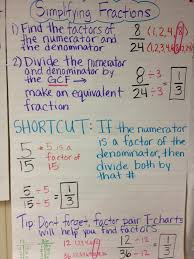 Simplifying Fractions
1) Find the factors of 8 (1,2,4,8)
the numerator and
the denominator 24 (1,2,3,4,6,8,
2) Divide the numerator
and denominator by 8 ÷ 8 = 1
the GCF → 24 ÷ 8 3
make an equivalent
fraction
SHORTCUT: If the numerator
is a factor of the
5 5 is a
15 factor of denominator, then
15 divide both by
that #
5 ÷5 = 1
15 ÷5 3
Tip: Don't forget, factor pair T-charts
will help you find factors.
12 12 ÷12 = 1
36 36 ÷12 3